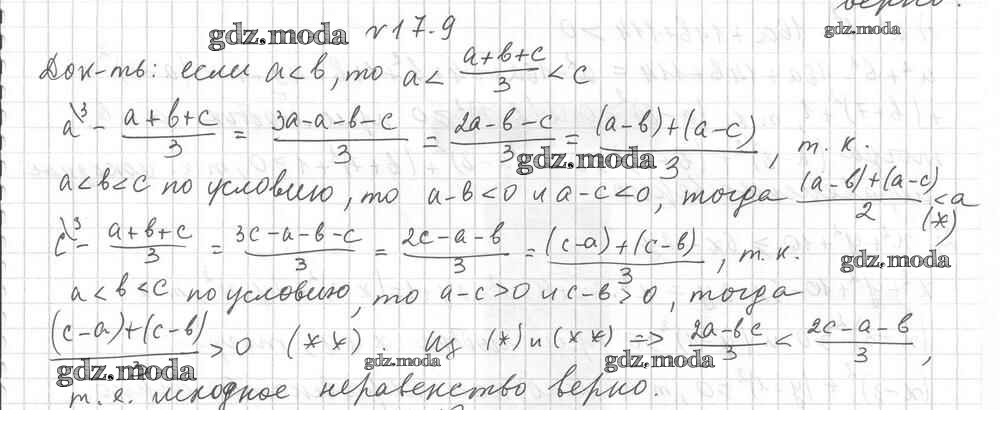 верно.
gdz.moda № 17.9 gdz.moda
Док-ть: если a<b, то a < (a+b+c)/3 < c
a\3 - (a+b+c)/3 = (3a-a-b-c)/3 = (2a-b-c)/3 = ((a-b)+(a-c))/3, т.к.
gdz.moda
a<b<c по условию, то a-b<0 и a-c<0, тогда ((a-b)+(a-c))/2 <a (*)
c\3 - (a+b+c)/3 = (3c-a-b-c)/3 = (2c-a-b)/3 = ((c-a)+(c-b))/3, т.к.
gdz.moda
a<b<c по условию, то a-c>0 и c-b>0, тогда
((c-a)+(c-b))/ >0 (**). Из (*) и (**) => (2a-b c)/3 < (2c-a-b)/3,
gdz.moda gdz.moda gdz.moda
т.е. исходное неравенство верно.